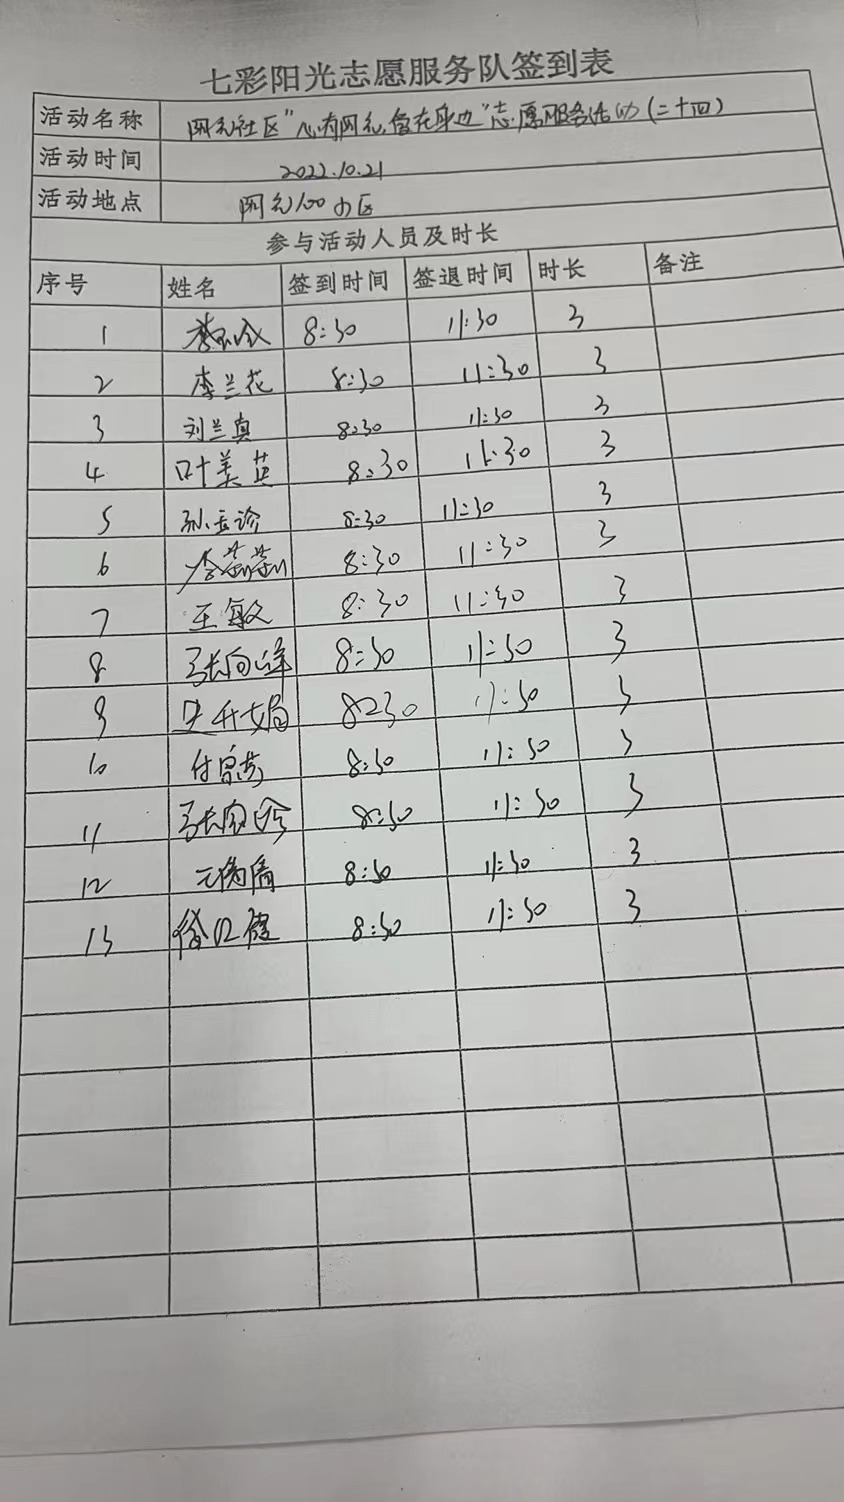 七彩阳光志愿服务队签到表
活动名称 网元社区"心有网元,爱在身边"志愿服务活动(二十四)
活动时间 2022.10.21
活动地点 网元100小区
参与活动人员及时长
序号 姓名 签到时间 签退时间 时长 备注
1 8:30 11:30 3
2 李兰花 8:30 11:30 3
3 刘兰真 8:30 11:30 3
4 叶美英 8:30 11:30 3
5 孙玉珍 8:30 11:30 3
6 8:30 11:30 3
7 王敏 8:30 11:30 3
8 张向峰 8:30 11:30 3
9 8:30 11:30 3
10 8:30 11:30 3
11 8:30 11:30 3
12 8:30 11:30 3
13 8:30 11:30 3